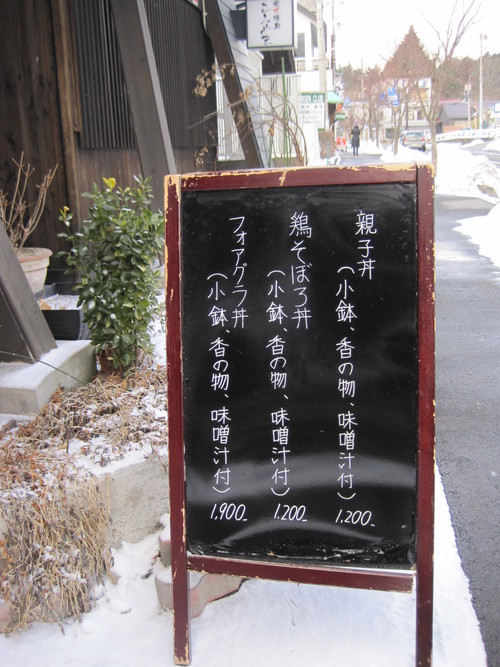 親子丼
(小鉢、香の物、味噌汁付)
1,200-
鶏そぼろ丼
(小鉢、香の物、味噌汁付)
1,200-
フォアグラ丼
(小鉢、香の物、味噌汁付)
1,900-